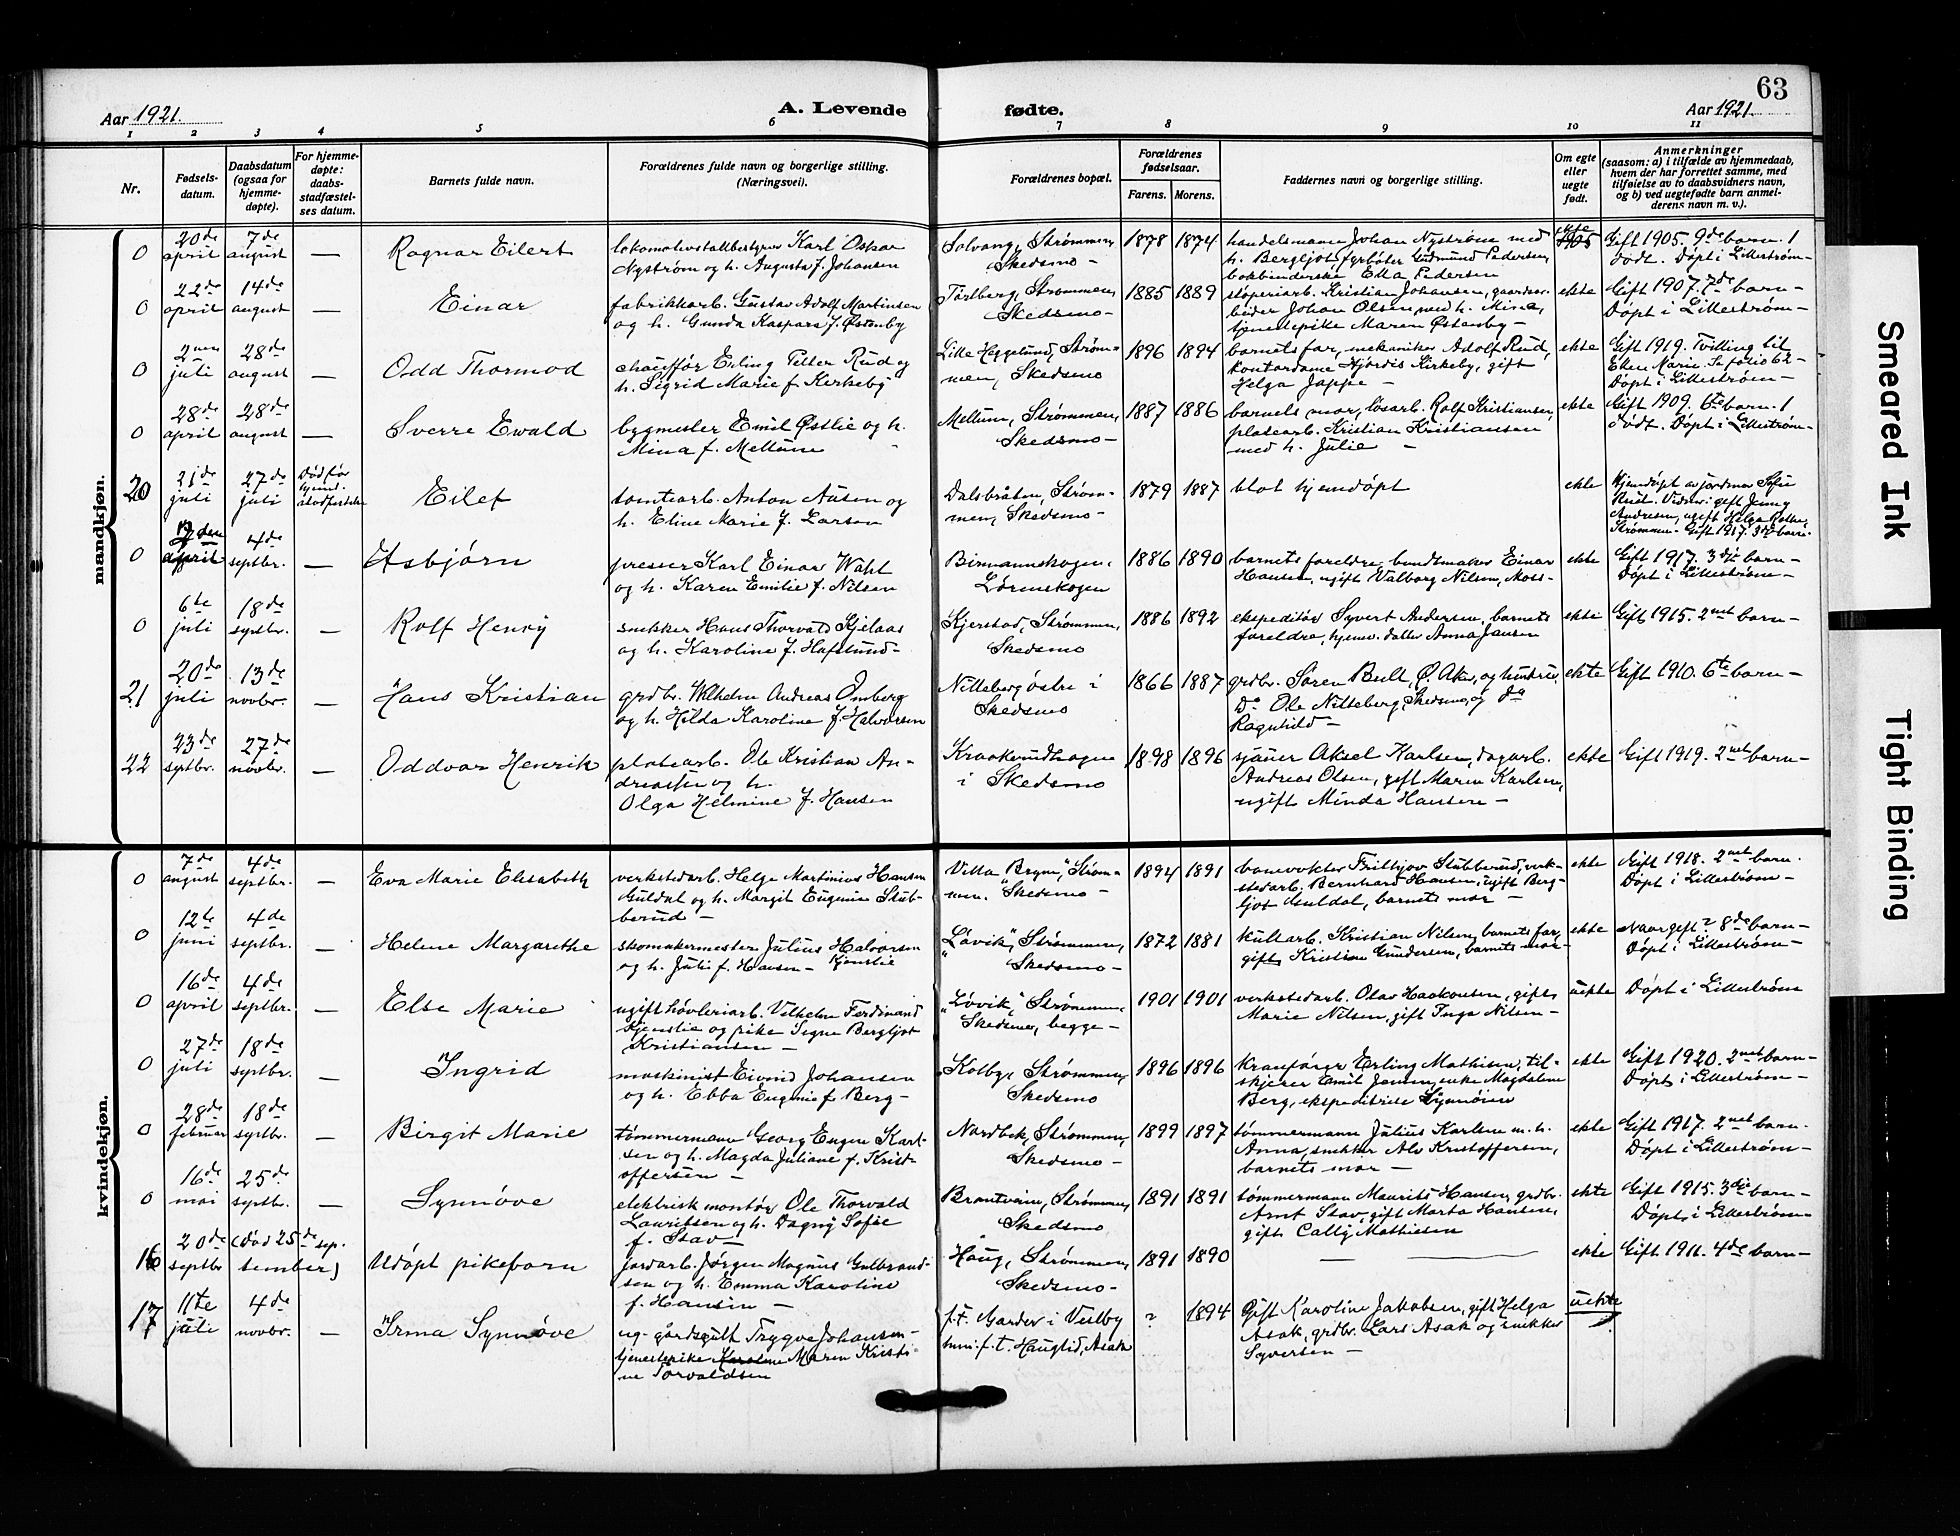 63
Aar 1921.
A. Levende fødte.
Aar 1921.
1 2 3 4 5 6 7 8 9 10 11
Nr.
Fødsels-
datum.
Daabsdatum
(ogsaa for
hjemme-
døpte).
For hjemme-
døpte:
daabs-
stadfæstel-
ses datum.
Barnets fulde navn.
Forældrenes fulde navn og borgerlige stilling.
(Næringsvei).
Forældrenes bopæl.
Forældrenes
fødselsaar.
Farens. Morens.
Faddernes navn og borgerlige stilling.
Om egte
eller
uegte
født.
Anmerkninger
(saasom: a) i tilfælde av hjemmedaab,
hvem der har forrettet samme, med
tilføielse av to daabsvidners navn,
og b) ved uegtefødte barn anmel-
derens navn m. v.).
mandkjøn.
0
20de
april
7de
august
—
Ragnar Eilert
lokomotivstallbestyrer Karl Oskar
Nystrøm og h. Augusta f. Johansen
Solvang, Strømmen,
Skedsmo –
1878 1874
handelsmann Johan Nystrøm med
h. Bergljot, fyrbøter Gudmund Pedersen,
bokbinderske Ella Pedersen
ekte
1905
Gift 1905. 9de barn. 1
død. Døpt i Lillestrøm–
0
22de
april
14de
august
—
Einar
fabrikkarb. Gustav Adolf Martinsen
og h. Gunda Kaspara f. Østenby
Strømmen,
Skedsmo –
1885 1889
støperiarb. Kristian Johansen, gaardar-
beider Johan Olsen med h. Mina,
tjenestepike Maren Østenby –
ekte
Gift 1907. 7de barn –
Døpt i Lillestrøm –
0
2nen
juli
28de
august
—
Odd Thormod
chauffør Erling Petter Rud og
h. Sigrid Marie f. Kirkeby
Lille Heggelund, Strøm-
men, Skedsmo
1896 1894
barnets far, mekaniker Adolf Rud,
kontordame Hjørdis Kirkeby, gift
Helga Jappe –
ekte
Gift 1919. Tvilling til
Ellen Marie. Se folio 62 –
Døpt i Lillestrøm –
0
28de
april
28de
august
—
Sverre Ewald
bygmester Emil Østlie og h.
Mina f. Mellum –
Mellum, Strømmen,
Skedsmo –
1887 1886
barnets mor, løsarb. Rolf Kristiansen,
platearb. Kristian Kristiansen
med h. Julie –
ekte
Gift 1909. 6te barn. 1
død. Døpt i Lillestrøm –
20
21de
juli
27de
juli
Død før
Eilef
tomtearb. Anton Aasen og
h. Eline Marie f. Larsen
Dalsbråten, Strøm-
men, Skedsmo –
1879 1887
blot hjemdøpt
ekte
Hjemdøpt av jordmor Sofie
Rust. Vidner: gift Jenny
Andresen, ugift Helga Rolke,
Strømmen. Gift 1917. 3dje barn.
0
april
4de
septbr.
—
Asbjørn
presser Karl Einar Wahl
og h. Karen Emilie f. Nilsen
Birmannskogen,
Lørenskogen
1886 1890
barnets foreldre, buntmaker Einar
Hansen, ugift Valborg Nilsen, Moss –
ekte
Gift 1917. 3dje barn –
Døpt i Lillestrøm –
0
6te
juli
18de
septbr.
—
Rolf Henry
snekker Hans Thorvald Kjelaas
og h. Karoline f. Hafslund –
Kjerstad, Strømmen,
Skedsmo
1886 1892
ekspeditør Syvert Andersen, barnets
foreldre, hjemv. datter Anna Jansen
ekte
Gift 1915. 2net barn –
21
20de
juli
13de
novbr.
—
Hans Kristian
grdbr. Wilhelm Andreas Omberg
og h. Hilda Karoline f. Halvorsen
Nitteberg østre i
Skedsmo
1866 1887
grdbr. Søren Bult, Ø. Aker, og hustru,
Do Ole Nitteberg, Skedsmo, og do
Ragnhild –
ekte
Gift 1910. 6te barn –
22
23de
septbr.
27de
novbr.
—
Oddvar Henrik
platearb. Ole Kristian An-
dreassen og h.
Olga Helmine f. Hansen
Kraakerudhagen
i Skedsmo
1898 1896
sjauer Aksel Karlsen, dagarb.
Andreas Olsen, gift Maren Karlsen,
ugift Minda Hansen –
ekte
Gift 1919. 2net barn –
kvindekjøn.
0
7de
august
4de
septbr.
—
Eva Marie Elisabeth
verkstedarb. Helge Martinius Hansen
Guldal og h. Margit Eugenie Stub-
berud –
Villa "Bryn," Strøm-
men. Skedsmo –
1894 1891
banevokter Fritjov Stubberud, verk-
stedarb. Bernhard Hansen, ugift Berg-
ljot Guldal, barnets mor –
ekte
Gift 1918. 2net barn.
Døpt i Lillestrøm –
0
12te
juni
4de
septbr.
—
Helene Margarethe
skomakermester Julius Halvorsen
og h. Julie f. Hansen – Kjenslie
"Løvik", Strømmen,
Skedsmo –
1872 1881
kullarb. Kristian Nilsen, barnets far,
gift Kristine Gundersen, barnets mor –
ekte
Naar gift? 8de barn –
Døpt i Lillestrøm –
0
16de
april
4de
septbr.
—
Else Marie
ugift høvleriarb. Vilhelm Ferdinand
Kjenslie og pike Signe Bergljot
Kristiansen –
"Løvik", Strømmen,
Skedsmo, begge –
1901 1901
verkstedarb. Olav Haakonsen, gift
Marie Nilsen, gift Inga Nilsen –
uekte
Døpt i Lillestrøm
0
27de
juli
18de
septbr.
—
Ingrid
maskinist Eivind Johansen
og h. Ebba Eugenie f. Berg –
Kolby, Strømmen,
Skedsmo
1896 1896
kranfører Erling Mathisen, til-
skjerer Emil Jensen, enke Magdalene
Berg, ekspeditrise
ekte
Gift 1920. 2net barn –
Døpt i Lillestrøm –
0
28de
februar
18de
septbr.
—
Birgit Marie
tømmermann Georg Eugen Karl-
sen og h. Magda Juliane f. Krist-
offersen –
Nordbek, Strømmen,
Skedsmo –
1899 1897
tømmermann Julius Karlsen m. h.
Anna, snekker Alv Kristoffersen,
barnets mor –
ekte
Gift 1917. 2net barn.
Døpt i Lillestrøm –
0
16de
mai
25de
septbr.
—
Synnøve
elektrisk montør Ole Thorvald
Lauritsen og h. Dagny Sofie
f. Stav –
Brantveien, Strømmen,
Skedsmo
1891 1891
tømmermann Maurits Hansen, grdbr.
Arnt Stav, gift Marta Hansen,
gift Cally Mathisen
ekte
Gift 1915. 3dje barn –
Døpt i Lillestrøm –
16
20de
septbr
(død 25de sep-
tember)
Udøpt pikebarn
jordarb. Jørgen Magnus Gulbrand-
sen og h. Emma Karoline
f. Hansen –
Haug, Strømmen,
Skedsmo –
1891 1890
—
ekte
Gift 1911. 4de barn –
17
11te
juli
4de
novbr.
—
Irma Synnøve
ug. gårdsgutt Trygve Johansen –
tjenestepike Karoline Maren Kristi-
ne Torvaldsen
f.t. Garder i Vestby
mor: f. t. Hauglid, Asak
? 1894
Gift Karoline Jakobsen, gift Helga
Asak, grdbr. Lars Asak og snikker
Syversen –
uekte
Smeared Ink
Tight Binding